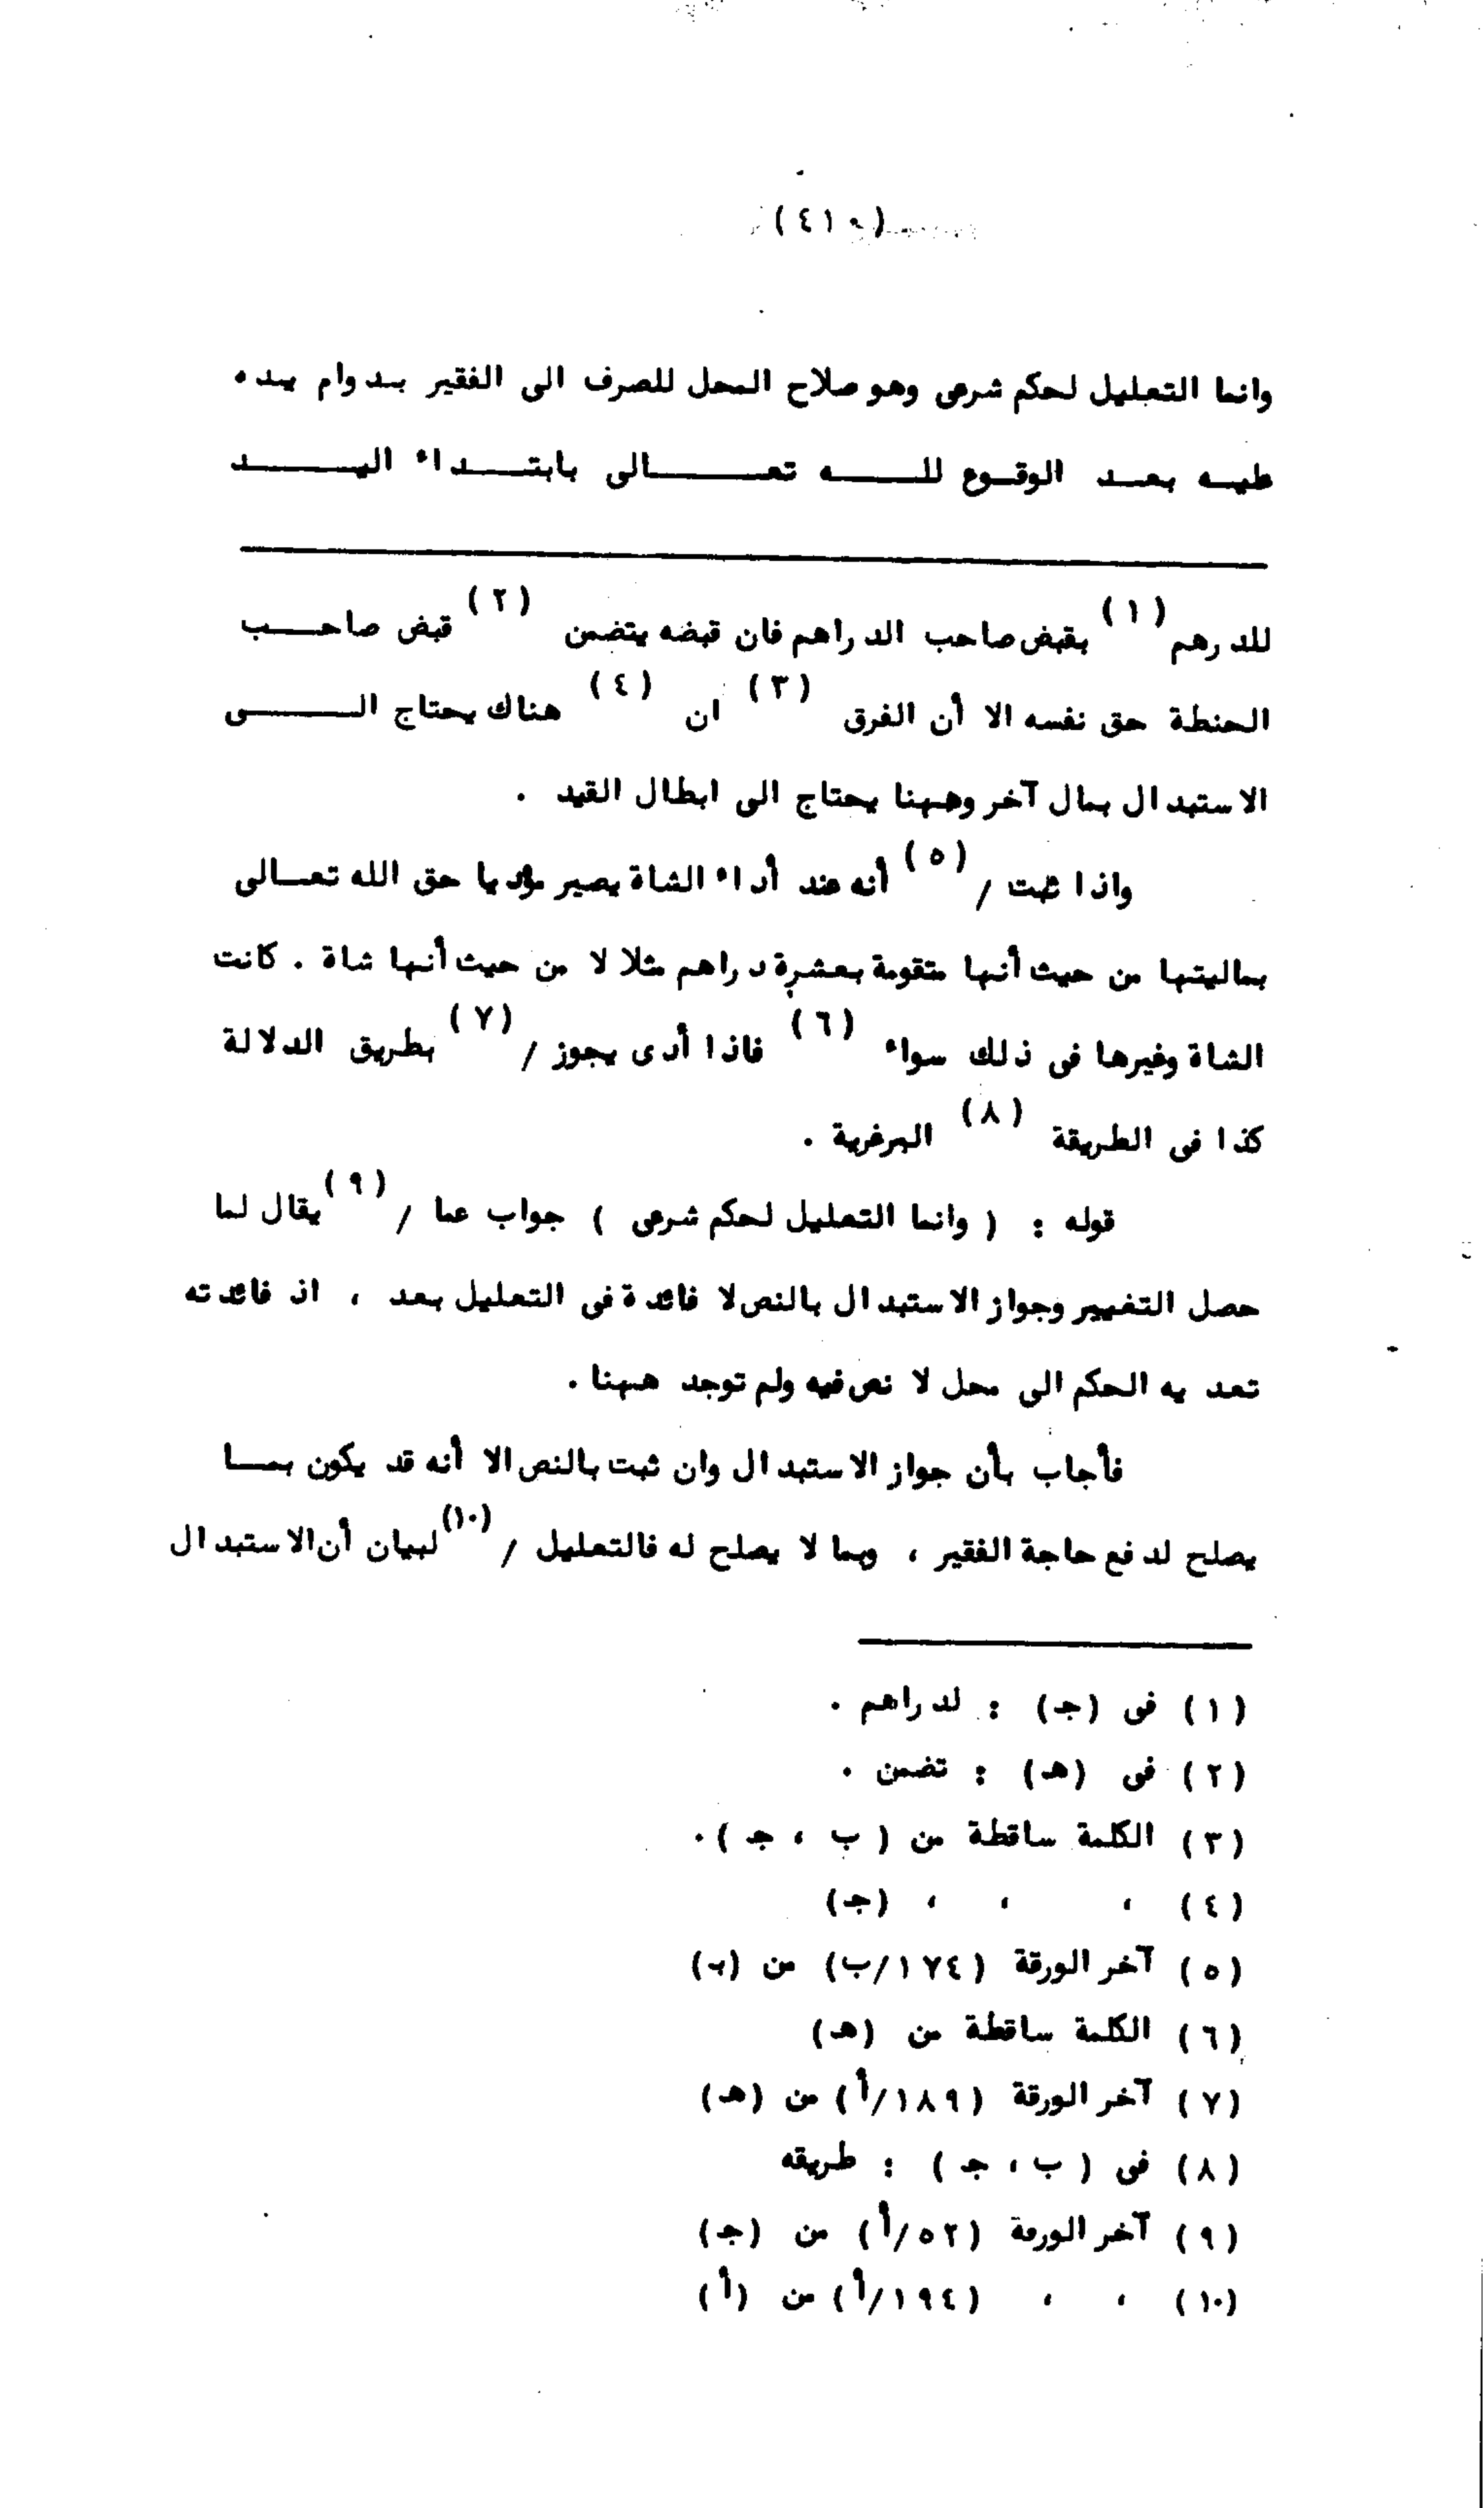 (٤١٠)
وانما التعليل لحكم شرعى وهو صلاح المحل للصرف الى الفقير بدوام يده
عليه بعد الوقوع لله تعالى بابتداء اليد
للدرهم (١) بقبض صاحب الدراهم فان قبضه يتضمن (٢) قبض صاحب
الحنطة حق نفسه الا أن الفرق (٣) ان (٤) هناك يحتاج الى
الاستبدال بمال آخر وههنا يحتاج الى ابطال القيد .
واذا ثبت / (٥) أنه عند أداء الشاة يصير مؤديا حق الله تعالى
بماليتها من حيث أنها متقومة بعشرة دراهم مثلا لا من حيث أنها شاة . كانت
الشاة وغيرها فى ذلك سواء (٦) فاذا أدى يجوز / (٧) بطريق الدلالة
كذا فى الطريقة (٨) البرغرية .
قوله : ( وانما التعليل لحكم شرعى ) جواب عما / (٩) يقال لما
حصل التغيير وجواز الاستبدال بالنص لا فائدة فى التعليل بعد ، اذ فائدته
تعديه الحكم الى محل لا نص فيه ولم توجد ههنا .
فأجاب بأن جواز الاستبدال وان ثبت بالنص الا أنه قد يكون بما
يصلح لدفع حاجة الفقير ، وبما لا يصلح له فالتعليل / (١٠) لبيان أن الاستبدال
(١) فى (جـ) : لدراهم .
(٢) فى (هـ) : تضمن .
(٣) الكلمة ساقطة من ( ب ، جـ ) .
(٤) ، ، ، (جـ)
(٥) آخر الورقة (١٧٤/ب) من (ب)
(٦) الكلمة ساقطة من (هـ)
(٧) آخر الورقة (١٨٩/أ) من (هـ)
(٨) فى ( ب ، جـ ) : طريقه
(٩) آخر الورقة (٥٢/أ) من (جـ)
(١٠) ، ، (١٩٤/أ) من (أ)